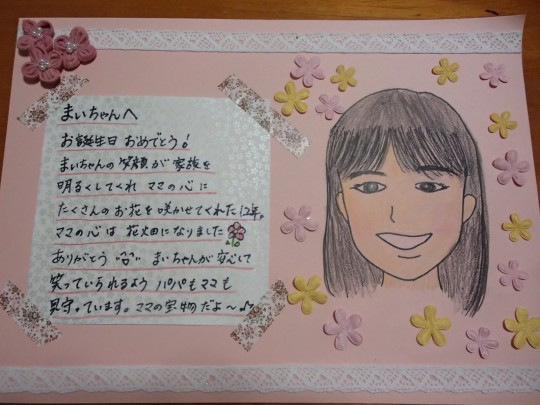 まいちゃんへ
お誕生日 おめでとう!
まいちゃんの笑顔が家族を
明るくしてくれ ママの心に
たくさんのお花を咲かせてくれた12年。
ママの心は 花畑になりました
ありがとう まいちゃんが安心して
笑っていられるよう パパもママも
見守っています。ママの宝物だよ〜♪